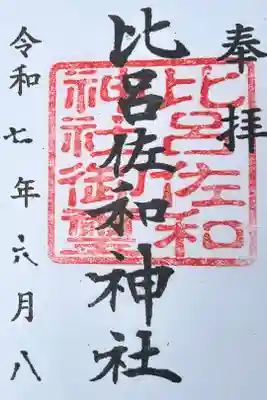 奉拝
比呂佐和神社
比呂佐和
神社御璽
令和七年六月八